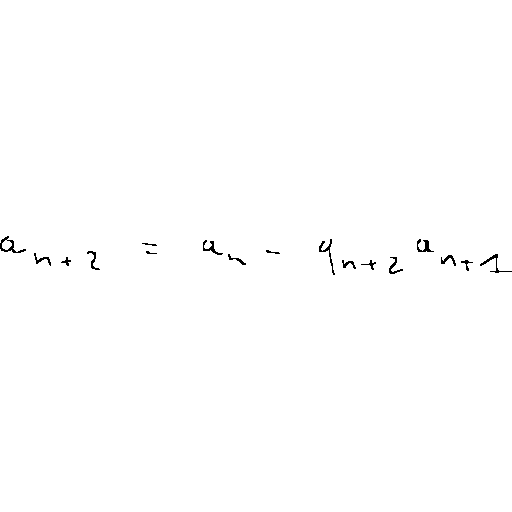 a_{n+2} = a_n - q_{n+2} a_{n+1}